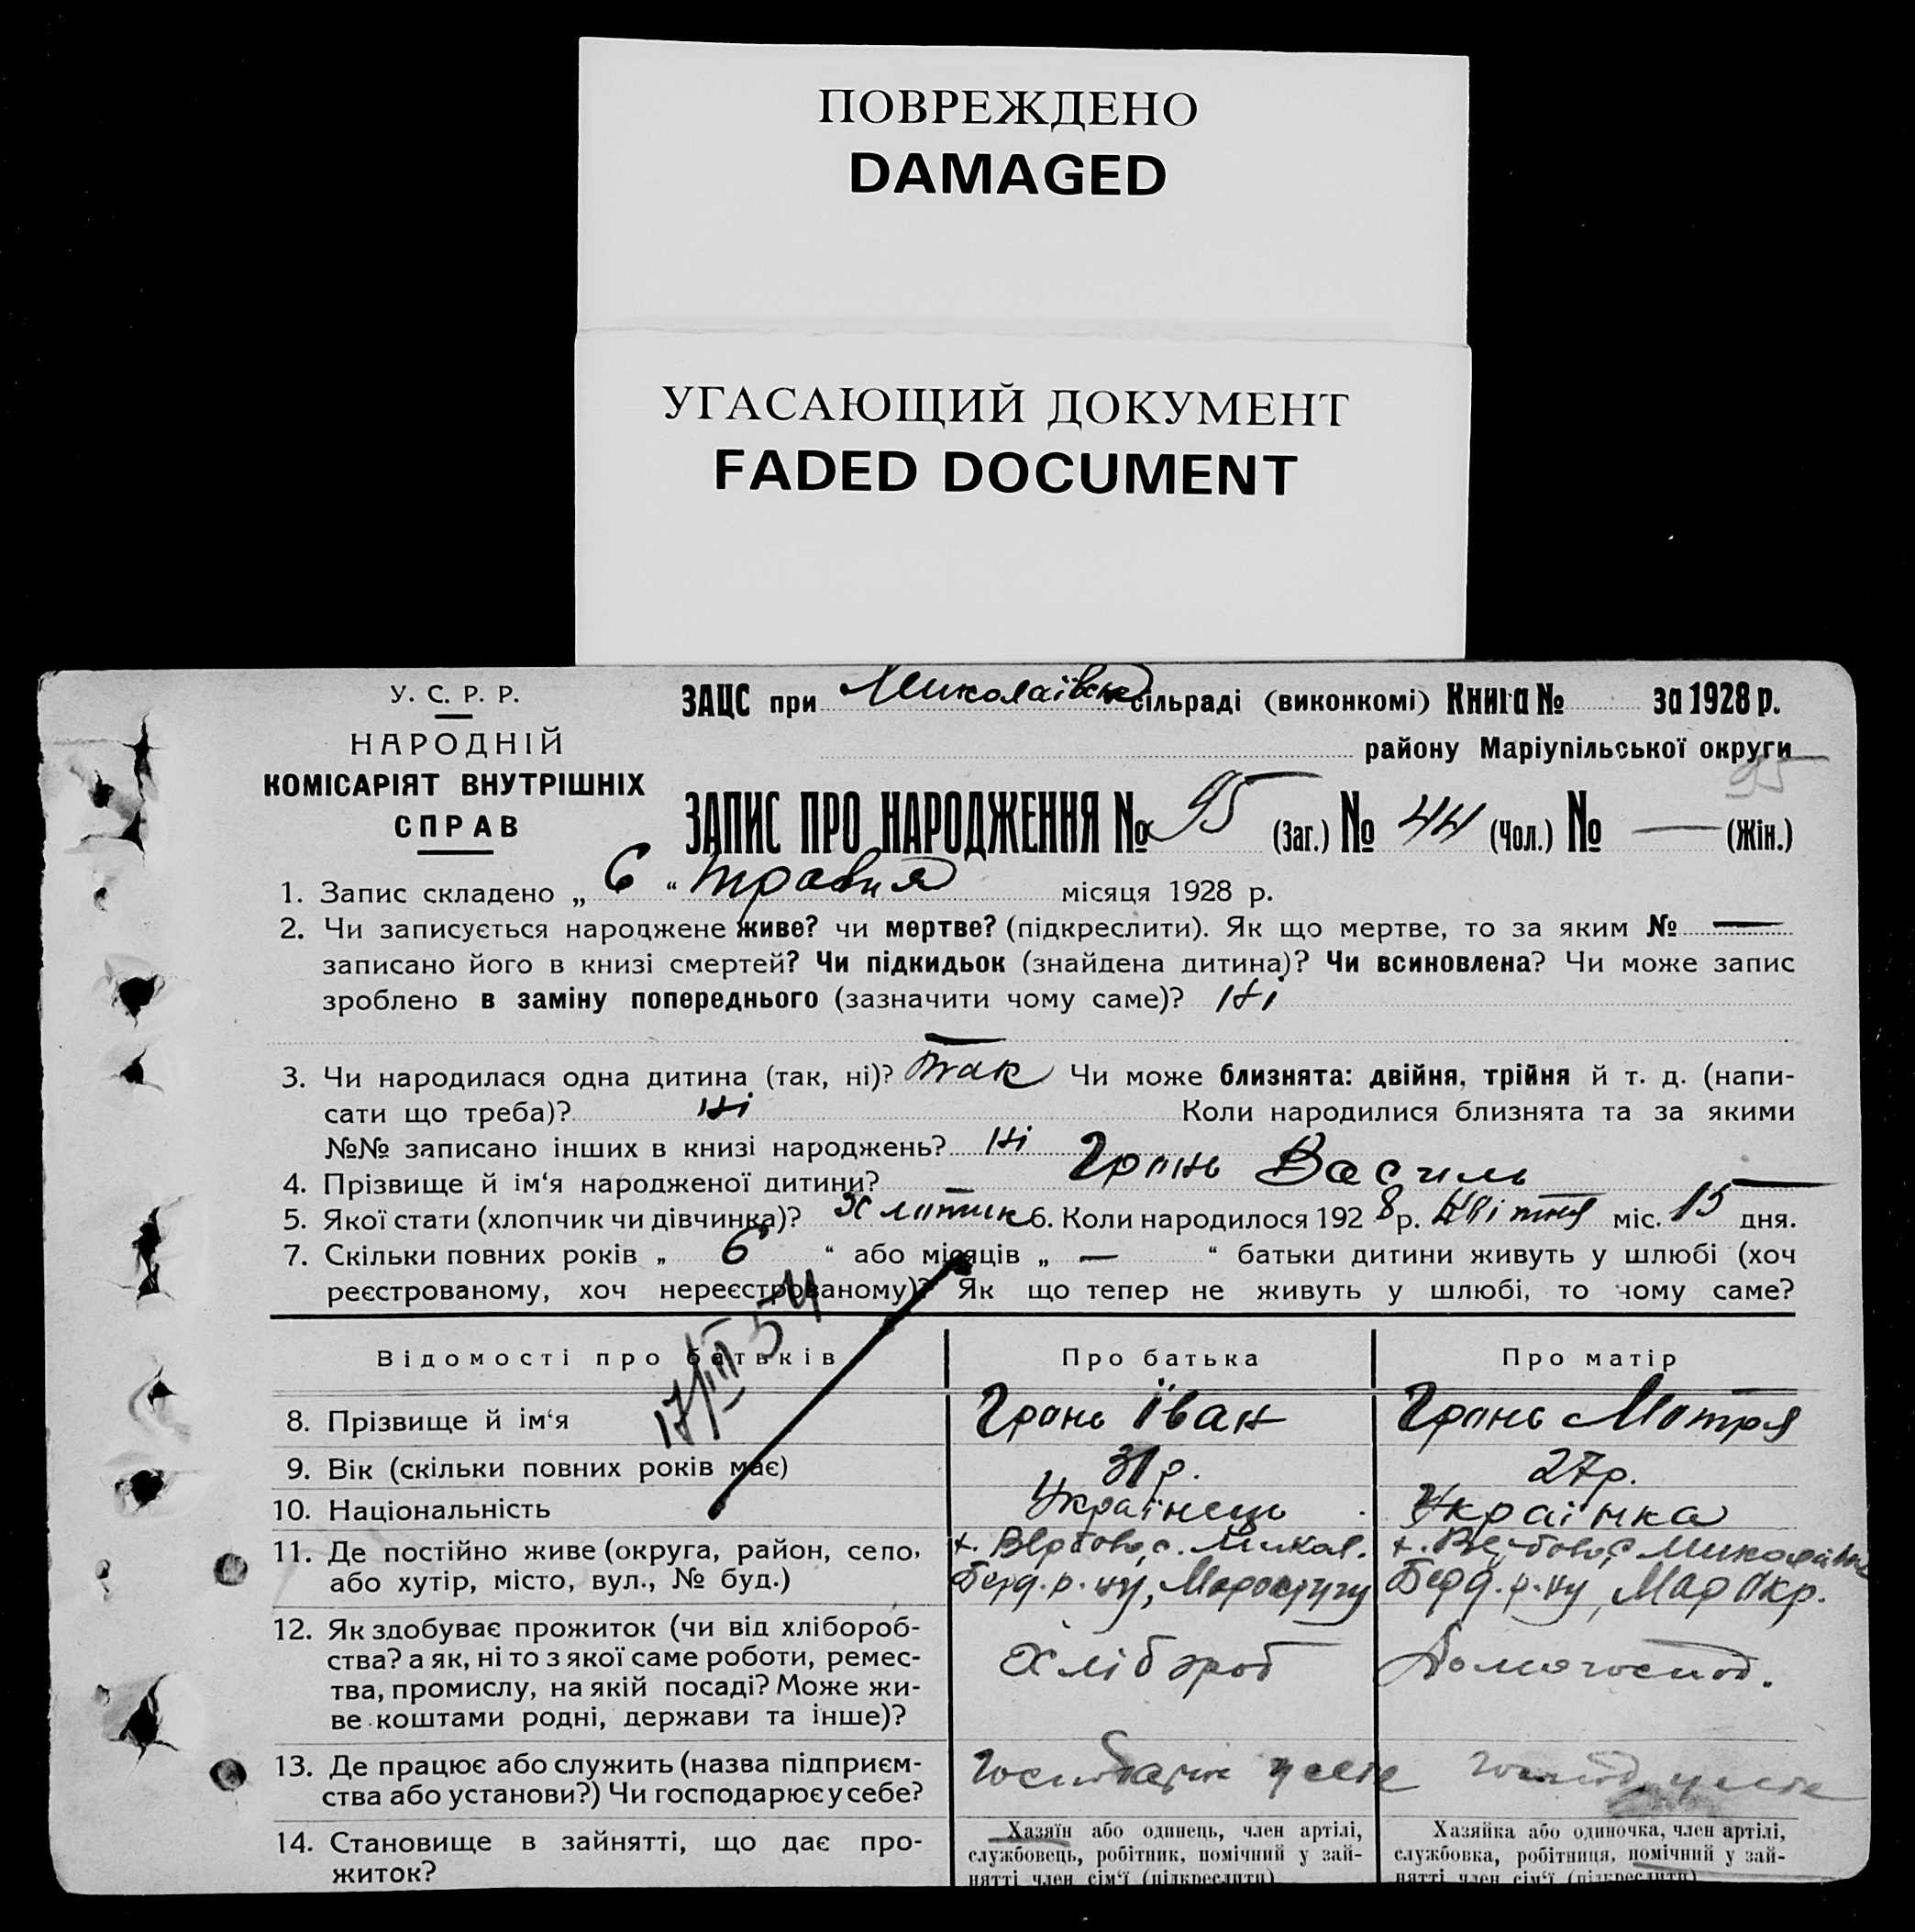 ПОВРЕЖДЕНО
DAMAGED
УГАСАЮЩИЙ ДОКУМЕНТ
FADED DOCUMENT
У. С. Р. Р.
НАРОДНІЙ
КОМІСАРІЯТ ВНУТРІШНІХ
СПРАВ
ЗАЦС при Миколаївськ сільраді (виконкомі) Книга № за 1928 р.
району Маріупільської округи
95
ЗАПИС ПРО НАРОДЖЕННЯ № 95 (Заг.) № 44 (Чол.) № — (Жін.)
1. Запис складено „ 6 “ травня місяця 1928 р.
2. Чи записується народжене живе? чи мертве? (підкреслити). Як що мертве, то за яким № —
записано його в книзі смертей? Чи підкидьок (знайдена дитина)? Чи всиновлена? Чи може запис
зроблено в заміну попереднього (зазначити чому саме)? Ні
3. Чи народилася одна дитина (так, ні)? Так Чи може близнята: двійня, трійня й т. д. (напи-
сати що треба)? Ні Коли народилися близнята та за якими
№№ записано інших в книзі народжень? Ні
4. Прізвище й ім‘я народженої дитини? Грань Василь
5. Якої стати (хлопчик чи дівчинка)? 6. Коли народилося 1928 р. Квітня міс. 15 дня.
7. Скільки повних років „ 6 “ або місяців „ — “ батьки дитини живуть у шлюбі (хоч
реєстрованому, хоч нереєстрованому)? Як що тепер не живуть у шлюбі, то чому саме?
17/III 54
Відомості про батьків Про батька Про матір
8. Прізвище й ім‘я Грань Іван Грань Мотря
9. Вік (скільки повних років має) 31 р. 27 р.
10. Національність Українець Українка
11. Де постійно живе (округа, район, село, х. Вербово, с. Микол.
або хутір, місто, вул., № буд.) Берд. р-ну, Мар. Окр.
12. Як здобуває прожиток (чи від хлібороб-
ства? а як, ні то з якої саме роботи, ремес- Хлібороб Домогоспод.
тва, промислу, на якій посаді? Може жи-
ве коштами родні, держави та інше)?
13. Де працює або служить (назва підприєм-
ства або установи?) Чи господарює у себе?
14. Становище в зайнятті, що дає про-
житок?
Хазяїн або одинець, член артілі,
службовець, робітник, помічний у зай-
нятті член сім‘ї (підкреслити)
Хазяйка або одиночка, член артілі,
службовка, робітниця, помічний у зай-
нятті член сім‘ї (підкреслити)